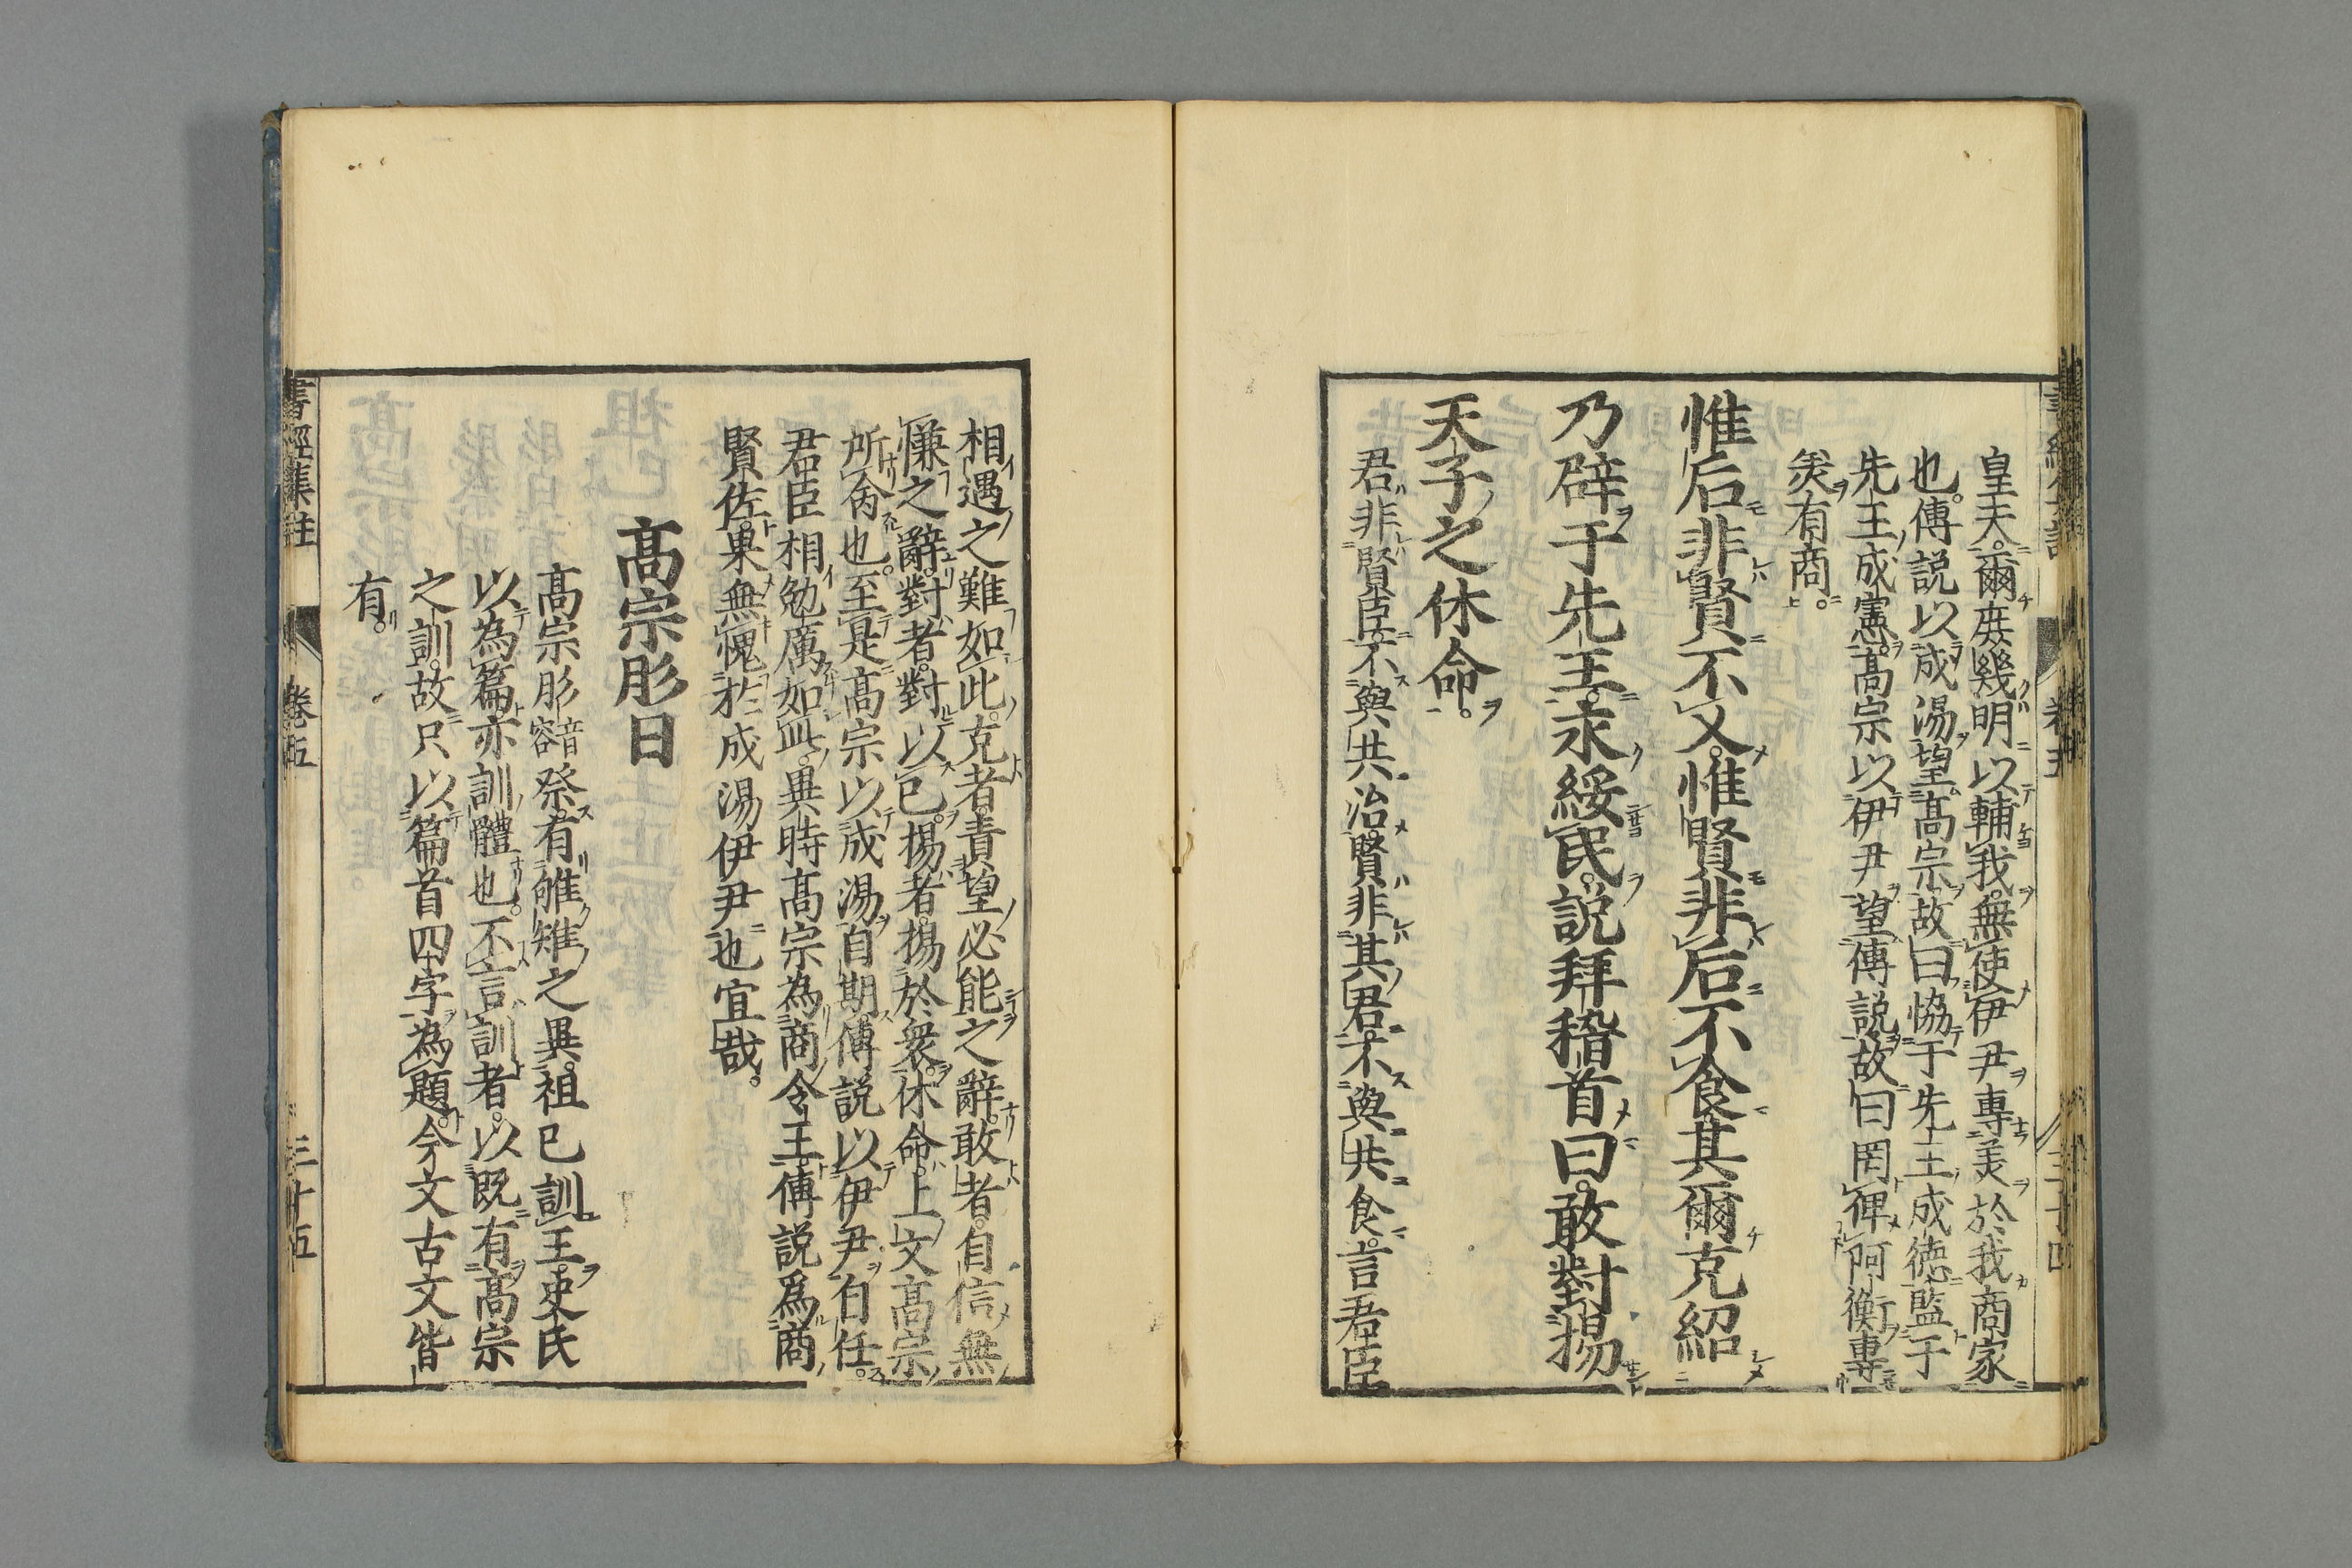 皇天。爾庶幾明以輔我。無使伊尹專美於我商家
也。傅説以成湯望高宗。故曰恊于先王成德。監于
先王成憲。高宗以伊尹望傅説。故曰罔俾阿衡專
羙有商。
惟后非賢不乂。惟賢非后不食。其爾克紹
乃辟于先王。永綏民。説拜稽首曰。敢對揚
天子之休命。
君非賢臣。不與共治。賢非其君。不與共食。言君臣
相遇之難如此。克者責望必能之辭。敢者。自信無
慊之辭。對者。對以已。揚者。揚於衆。休命。上文高宗
所命也。至是高宗以成湯自期。傅説以伊尹自任。
君臣相勉厲如此。異時高宗為商令王。傅説爲商
賢佐。果無愧於成湯伊尹也。宜哉。
高宗肜日
高宗肜音容祭。有雊雉之異。祖已訓王。史氏
以為篇。亦訓體也。不言訓者。以既有高宗
之訓。故只以篇首四字為題。今文古文皆
有。
書經集註 卷五 三十五